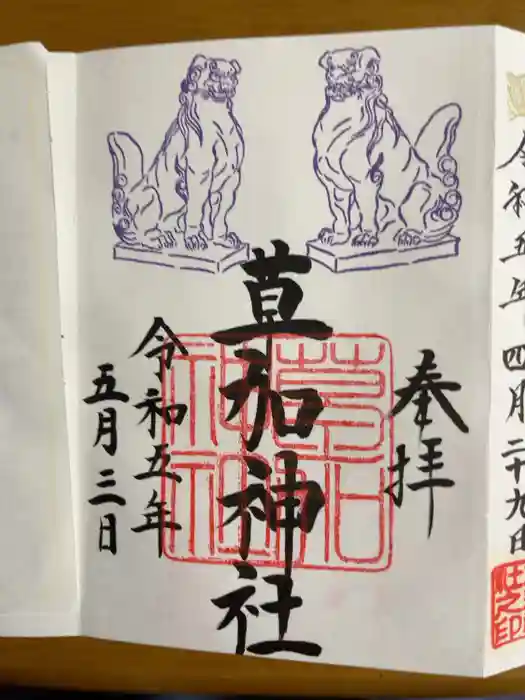 奉拝
草加神社
令和五年
五月三日
令和五年 四月二十九日